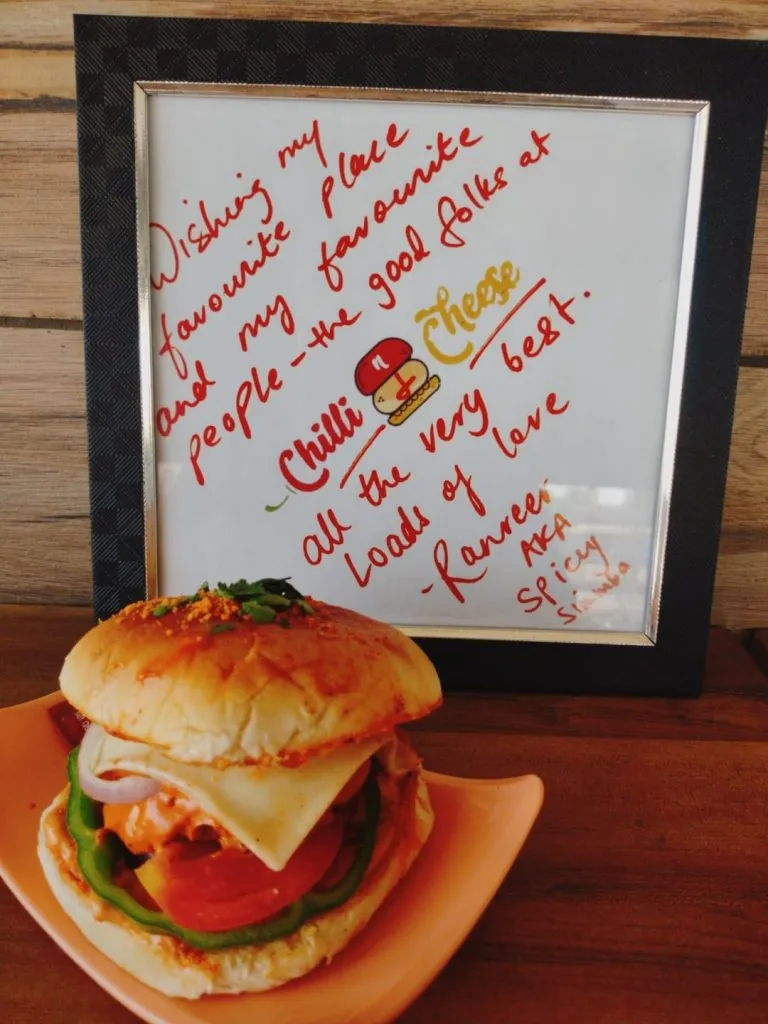 Wishing my
favourite place
and my favourite
people - the good folks at
Chilli n Cheese
all the very best.
Loads of love
- Ranveer
AKA
Spicy
Simmba